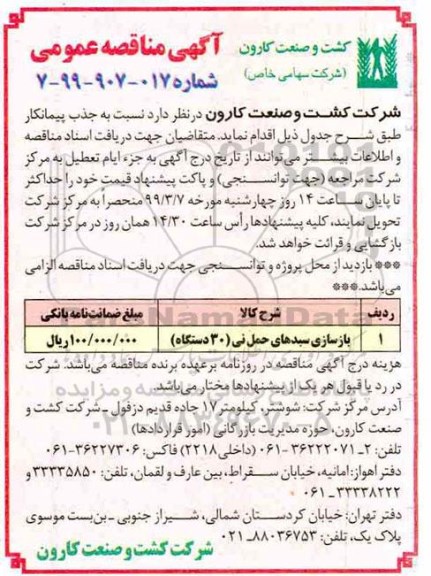 آگهی مناقصه عمومی
شماره ۰۱۷-۹۰۷-۹۹-۷
کشت و صنعت کارون
(شرکت سهامی خاص)
شرکت کشت و صنعت کارون در نظر دارد نسبت به جذب پیمانکار
طبق شرح جدول ذیل اقدام نماید. متقاضیان جهت دریافت اسناد مناقصه
و اطلاعات بیشتر می‌توانند از تاریخ درج آگهی به جزء ایام تعطیل به مرکز
شرکت مراجعه (جهت توانسنجی) و پاکت پیشنهاد قیمت خود را حداکثر
تا پایان ساعت ۱۴ روز چهارشنبه مورخه ۹۹/۳/۷ منحصراً به مرکز شرکت
تحویل نمایند، کلیه پیشنهادها رأس ساعت ۱۴/۳۰ همان روز در مرکز شرکت
بازگشایی و قرائت خواهد شد.
*** بازدید از محل پروژه و توانسنجی جهت دریافت اسناد مناقصه الزامی
می‌باشد.***
ردیف شرح کالا مبلغ ضمانت‌نامه بانکی
۱ بازسازی سبدهای حمل نی (۳۰ دستگاه) ۱۰۰/۰۰۰/۰۰۰ ریال
هزینه درج آگهی مناقصه در روزنامه برعهده برنده مناقصه می‌باشد. شرکت
در رد یا قبول هر یک از پیشنهادها مختار می‌باشد.
آدرس مرکز شرکت: شوشتر، کیلومتر ۱۷ جاده قدیم دزفول ـ شرکت کشت و
صنعت کارون، حوزه مدیریت بازرگانی (امور قراردادها)
تلفن: ۲ـ ۳۶۲۲۲۰۷۱-۰۶۱ (داخلی ۲۲۱۸) فاکس: ۳۶۲۲۷۳۰۶-۰۶۱
دفتر اهواز: امانیه، خیابان سقراط، بین عارف و لقمان، تلفن: ۳۳۳۳۵۸۵۰ و
۳۳۳۳۸۲۲۲ـ۰۶۱
دفتر تهران: خیابان کردستان شمالی، شیراز جنوبی ـ بن‌بست موسوی
پلاک یک، تلفن: ۸۸۰۳۶۷۵۳ـ۰۲۱
شرکت کشت و صنعت کارون